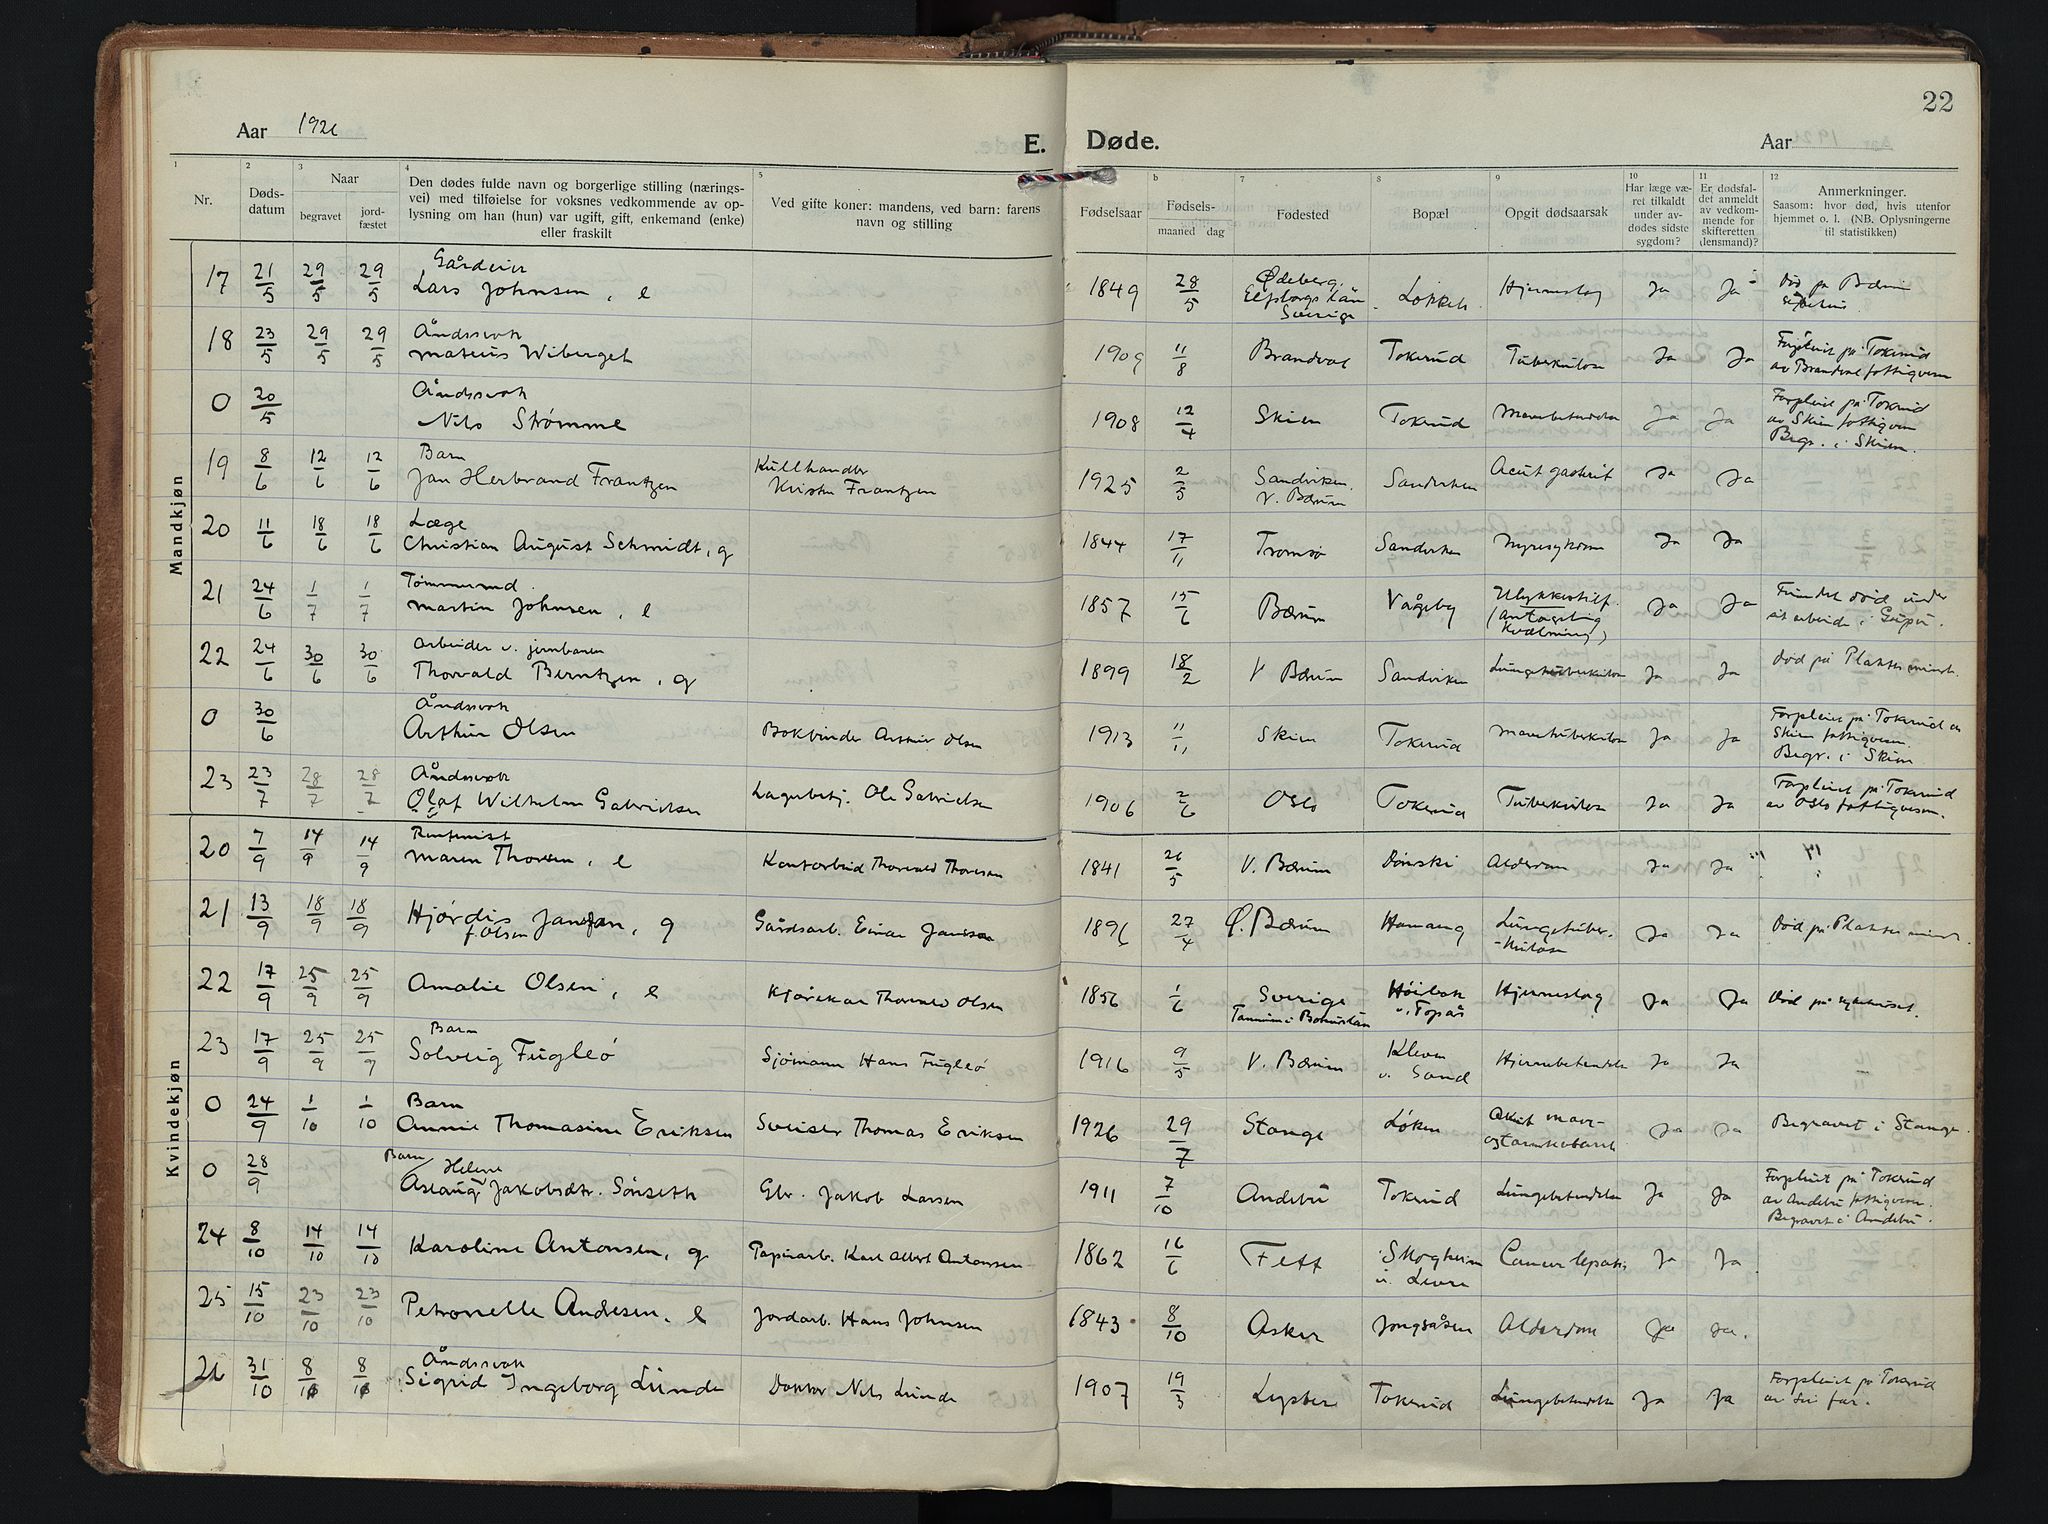 22
Aar 1926
E. Døde.
Aar 1926
1 2 3 4 5 b 7 8 9 10 11 12
Nr.
Døds-
datum
Naar
begravet
jord-
fæstet
Den dødes fulde navn og borgerlige stilling (nærings-
vei) med tilføielse for voksnes vedkommende av op-
lysning om han (hun) var ugift, gift, enkemand (enke)
eller fraskilt
Ved gifte koner: mandens, ved barn: farens
navn og stilling
Fødselsaar
Fødsels-
maaned dag
Fødested
Bopæl
Opgit dødsaarsak
Har læge væ-
ret tilkaldt
under av-
dødes sidste
sygdom?
Er dødsfal-
det anmeldt
av vedkom-
mende for
skifteretten
(lensmand)?
Anmerkninger.
Saasom: hvor død, hvis utenfor
hjemmet o. l. (NB. Oplysningerne
til statistikken)
Mandkjøn
17 21/5 29/5 29/5 Gårdeier
Lars Johnsen, e
1849 28/5 Ødeberg,
Elfsborgs län
Sverige
Løkken Hjerneslag Ja Ja Død på Bærum
sykehus.
18 23/5 29/5 29/5 Åndssvak
Marius Wiberget
1909 11/8 Brandval Tokerud Tuberkulose Ja Ja Forpleiet på Tokerud
av Brandval fattigvesen
0 20/5 Åndssvak
Nils Strømme
1908 12/4 Skien Tokerud Mavebetendelse Ja Ja Forpleiet på Tokerud
av Skien fattigvesen
Begr. i Skien.
19 8/6 12/6 12/6 Barn
Jan Herbrand Frantzen
Kullhandler
Kristen Frantzen
1925 2/5 Sandviken
V. Bærum
Sandviken Acut gasterit Ja Ja
20 11/6 18/6 18/6 Læge
Christian August Schmidt, g
1844 17/11 Tromsø Sandviken Nyresykdom Ja Ja
21 24/6 1/7 1/7 Tømmermd.
Martin Johnsen, e
1857 15/6 Bærum Vågeby Ulykkestilf.
(antagelig
kvælning)
Ja Ja Fundet død under
sit arbeide i
22 24/6 30/6 30/6 Arbeider v. jernbanen
Thorvald Berntzen, g
1899 18/2 V Bærum Sandviken Lungetuberkulose Ja Ja Død på
0 30/6 Åndssvak
Arthur Olsen
Bokbinder Arthur Olsen
1913 11/11 Skien Tokerud Mavetuberkulose Ja Ja Forpleiet på Tokerud av
Skien fattigvesen.
Begr. i Skien
23 23/7 28/7 28/7 Åndssvak
Olaf Wilhelm Gabrielsen
Lagerbetj. Ole Gabrielsen
1906 2/6 Oslo Tokerud Tuberkulose Ja Ja Forpleiet på Tokerud
av Oslo fattigvesen.
Kvindekjøn
20 7/9 14/9 14/9 Rentenist
Maren Thoresen, e
Kontorbud Thorvald Thoresen
1841 26/5 V. Bærum Dønski Alderdom Ja Ja
21 13/9 18/9 18/9 Hjørdis Jansson, g
f. Olsen
Gårdsarb. Einar Jansson
1896 27/4 Ø. Bærum Hamang Lungetuber-
kulose
Ja Ja Død på
22 17/9 25/9 25/9 Amalie Olsen, e Kjørekar Thorvald Olsen
1856 1/6 Sverige
Tannum i Bohuslän
Høibak
v. Topås
Hjerneslag Ja Ja Død på sykehuset.
23 17/9 25/9 25/9 Barn
Solveig Fugleø
Sjømann Hans Fugleø
1916 9/5 V. Bærum Kleven
v. Sand
Hjernebetendelse Ja Ja
0 24/9 1/10 1/10 Barn
Annie Thomasine Eriksen Sveiser Thomas Eriksen
1926 29/7 Stange Løken Akut mave-
og tarmkatarrh
Ja Ja Begravet i Stange.
0 28/9 Barn
Helene
Aslaug Jakobsdtr. Sønseth
Gbr. Jakob Larsen
1911 7/10 Andebu Tokerud Lungebetendelse Ja Ja Forpleiet på Tokerud
av Andebu fattigvesen.
Begravet i Andebu.
24 8/10 14/10 14/10 Karoline Antonsen, g Papirarb. Karl Albert Antonsen
1862 16/6 Fett Skogheim
v. Levre
Cancer hepatis Ja Ja
25 15/10 23/10 23/10 Petronelle Andresen, e Jordarb. Hans Johnsen
1843 8/10 Asker Jongsåsen Alderdom Ja Ja.
26 31/10 8/11 8/11 Åndssvak
Sigrid Ingeborg Lunde
Doktor Nils Lunde
1907 19/3 Lyster Tokerud Lungebetendelse Ja Ja Forpleiet på Tokerud
av sin far.